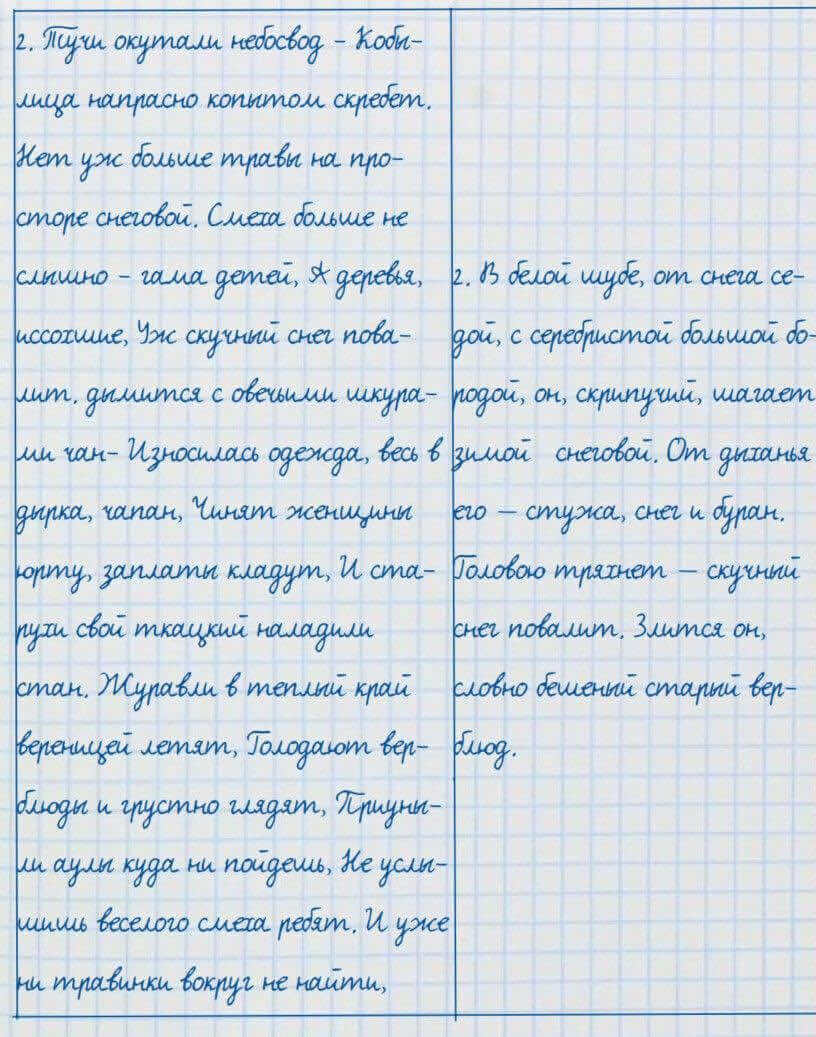 2. Тучи окутали небосвод – Кобы-
лица напрасно копытом скребет.
Нет уж больше травы на про-
сторе снеговой. Смеха больше не
слышно – гама детей, А деревья,
иссохшие, Уж скучный снег пова-
лит. дымится с овечьими шкура-
ми чан- Износилась одежда, весь в
дырка, чапан, Чинят женщины
юрту, заплаты кладут, И ста-
рухи свой ткацкий наладили
стан. Журавли в теплый край
вереницей летят, Голодают вер-
блюды и грустно глядят, Приуны-
ли аулы куда ни пойдешь, Не услы-
шишь веселого смеха ребят. И уже
ни травинки вокруг не найти,
2. В белой шубе, от снега се-
дой, с серебристой большой бо-
родой, он, скрипучий, шагает
зимой снеговой. От дыханья
его — стужа, снег и буран.
Головою тряхнет — скучный
снег повалит. Злится он,
словно бешеный старый вер-
блюд.